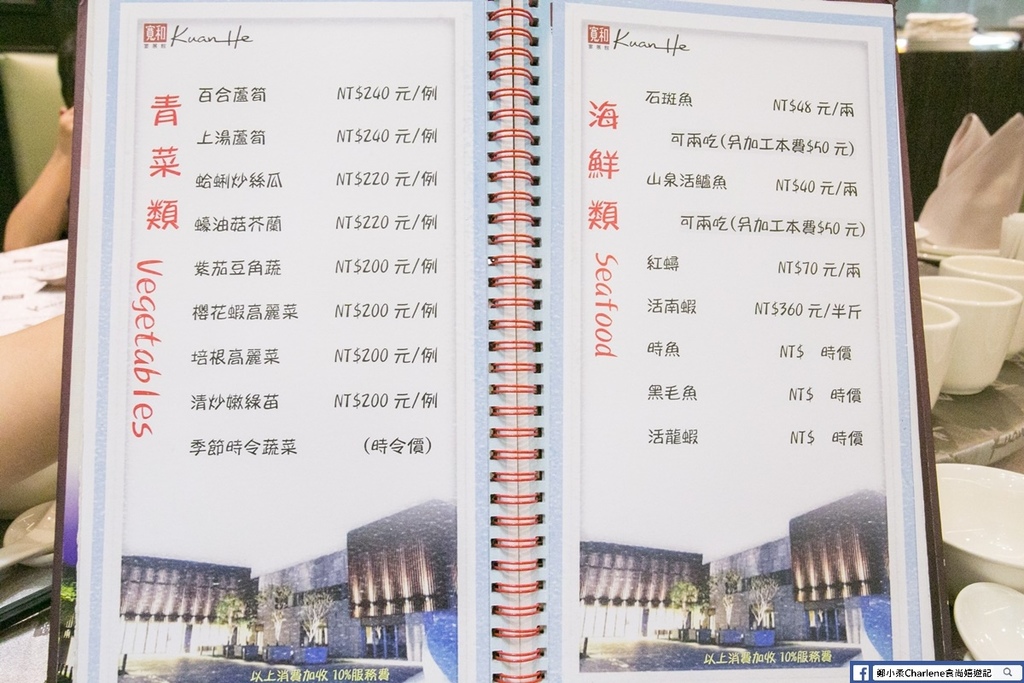 寬和
宴展館
KuanHe
青菜類 Vegetables
百合蘆筍 NT$240 元/例
上湯蘆筍 NT$240 元/例
蛤蜊炒絲瓜 NT$220 元/例
蠔油菇芥蘭 NT$220 元/例
紫茄豆角蔬 NT$200 元/例
櫻花蝦高麗菜 NT$200 元/例
培根高麗菜 NT$200 元/例
清炒嫩綠苗 NT$200 元/例
季節時令蔬菜 (時令價)
以上消費加收 10%服務費
寬和
宴展館
KuanHe
海鮮類 Seafood
石斑魚 NT$48 元/兩
可兩吃(另加工本費$50 元)
山泉活鱸魚 NT$40 元/兩
可兩吃(另加工本費$50 元)
紅蟳 NT$70 元/兩
活南蝦 NT$360 元/半斤
時魚 NT$ 時價
黑毛魚 NT$ 時價
活龍蝦 NT$ 時價
以上消費加收 10%服務費
鄭小柔Charlene食尚嬉遊記